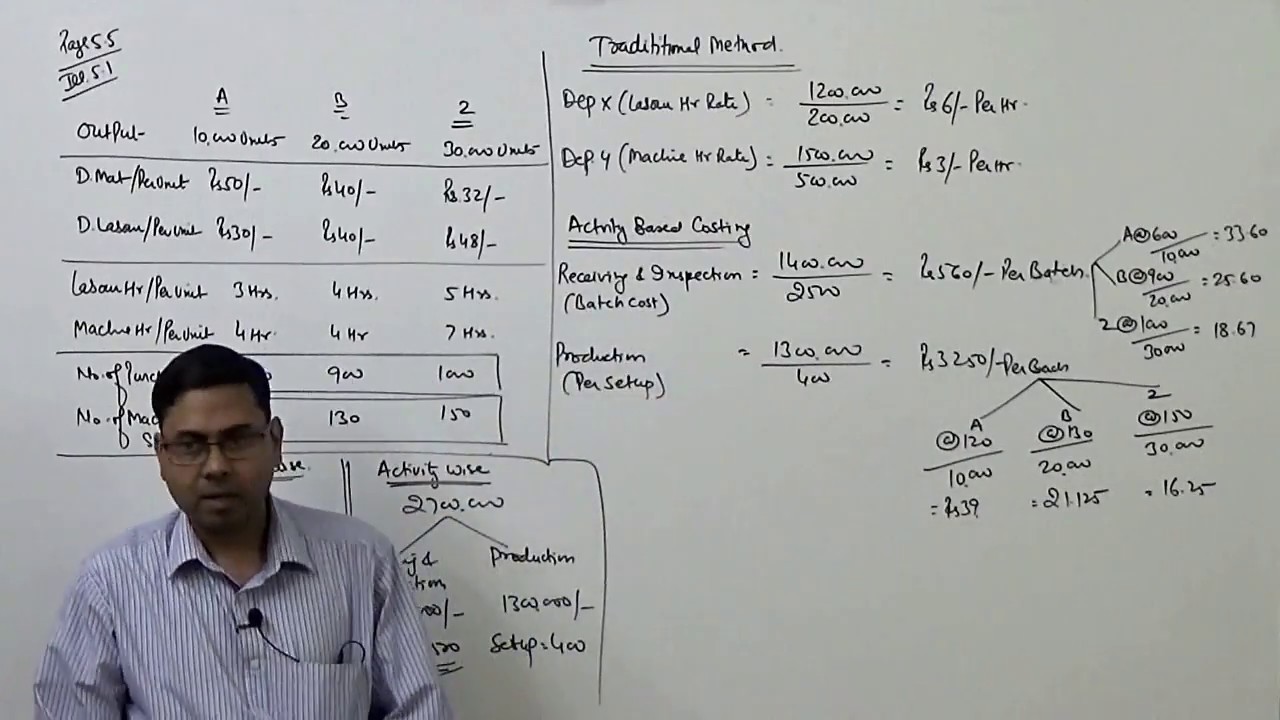 Page 5.5
Ill. 5.1
A B Z
Output- 10,000 Units 20,000 Units 30,000 Units
D.Mat/Per Unit Rs50/- Rs40/- Rs.32/-
D.Labour/Per Unit Rs30/- Rs40/- Rs48/-
Labour Hr/Per Unit 3 Hrs. 4 Hrs. 5 Hrs.
Machine Hr/Per Unit 4 Hr. 4 Hr 7 Hrs.
No. of Purc 900 1000
No. of Mac 130 150
S
wise. Activity wise
2700,000
g & Production
tion
00/- 1300,000/-
500 Setup = 400
Traditional Method.
Dep X (Labour Hr Rate) = 1200,000 / 200,000 = Rs6/- Per Hr.
Dep. Y (Machine Hr Rate) = 1500,000 / 500,000 = Rs3/- Per Hr.
Activity Based Costing
Receiving & Inspection = 1400,000 / 2500 = Rs560/- Per Batch
(Batch cost)
A@600 / 10,000 = 33.60
B@900 / 20,000 = 25.60
Z@1000 / 30000 = 18.67
Production = 1300,000 / 400 = Rs3250/- Per Bach
(Per Setup)
A B Z
@120 @130 @150
10,000 20,000 30,000
= Rs39 = 21.125 = 16.25